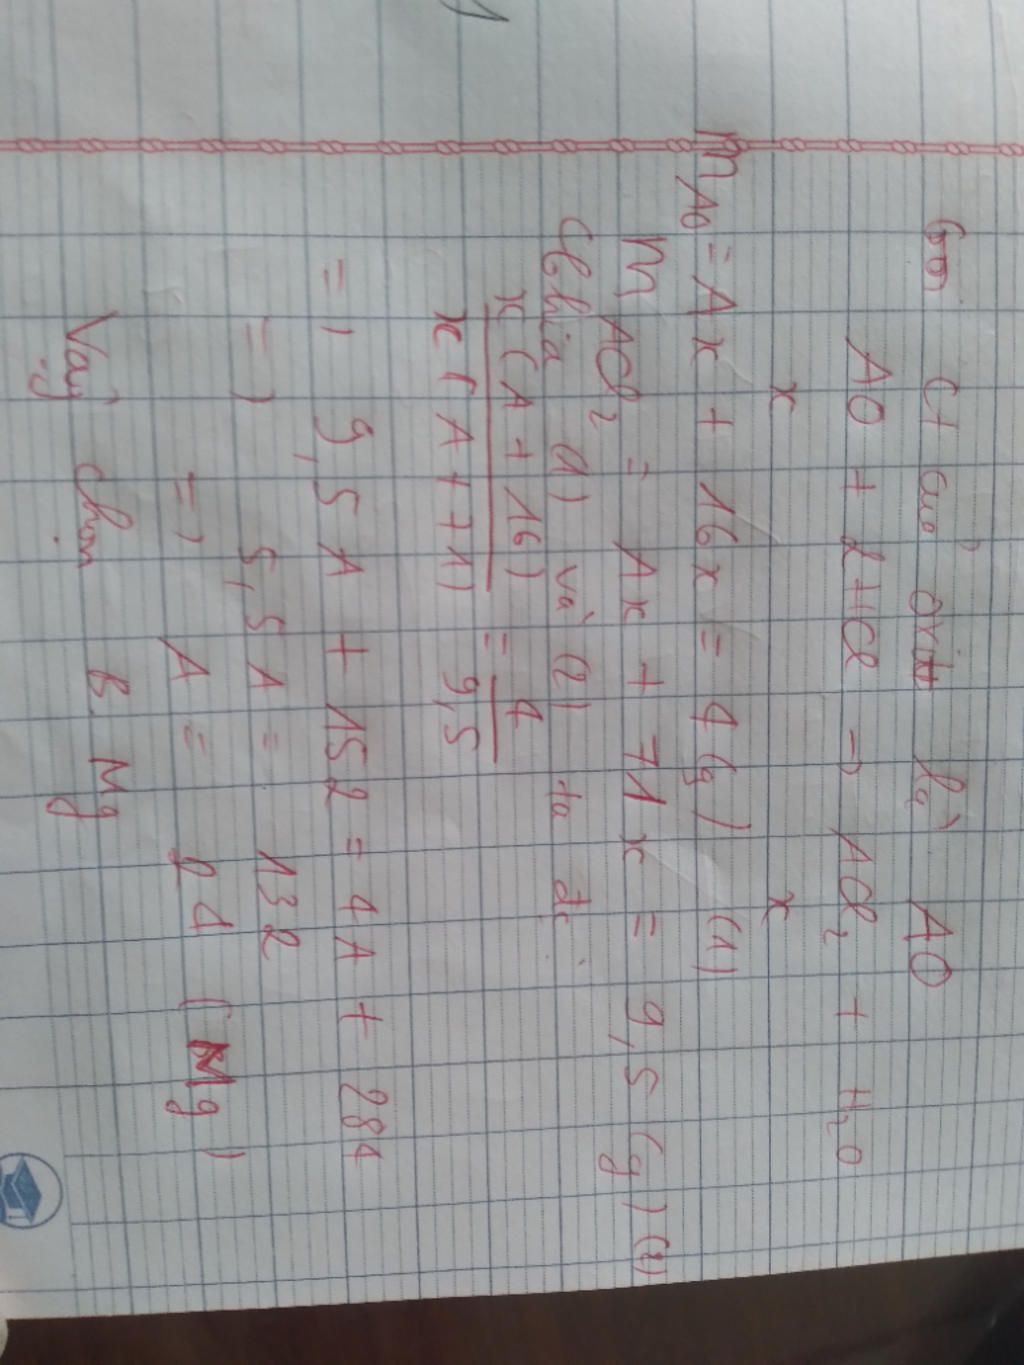 Gọi Ct của oxit là AO
AO + 2HCl -> ACl2 + H2O
x x
mAO = Ax + 16x = 4 (g) (1)
m ACl2 = Ax + 71x = 9,5 (g) (2)
Chia (1) và (2) ta dc
x(A + 16) / x(A + 71) = 4 / 9,5
=) 9,5A + 152 = 4A + 284
=) 5,5A = 132
=) A = 24 (Mg)
Vậy chọn B. Mg